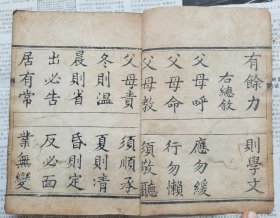 有餘力 則學文
右總敘
父母呼 應勿緩
父母命 行勿懶
父母教 須敬聽
父母責 須順承
冬則溫 夏則凊
晨則省 昏則定
出必告 反必面
居有常 業無變